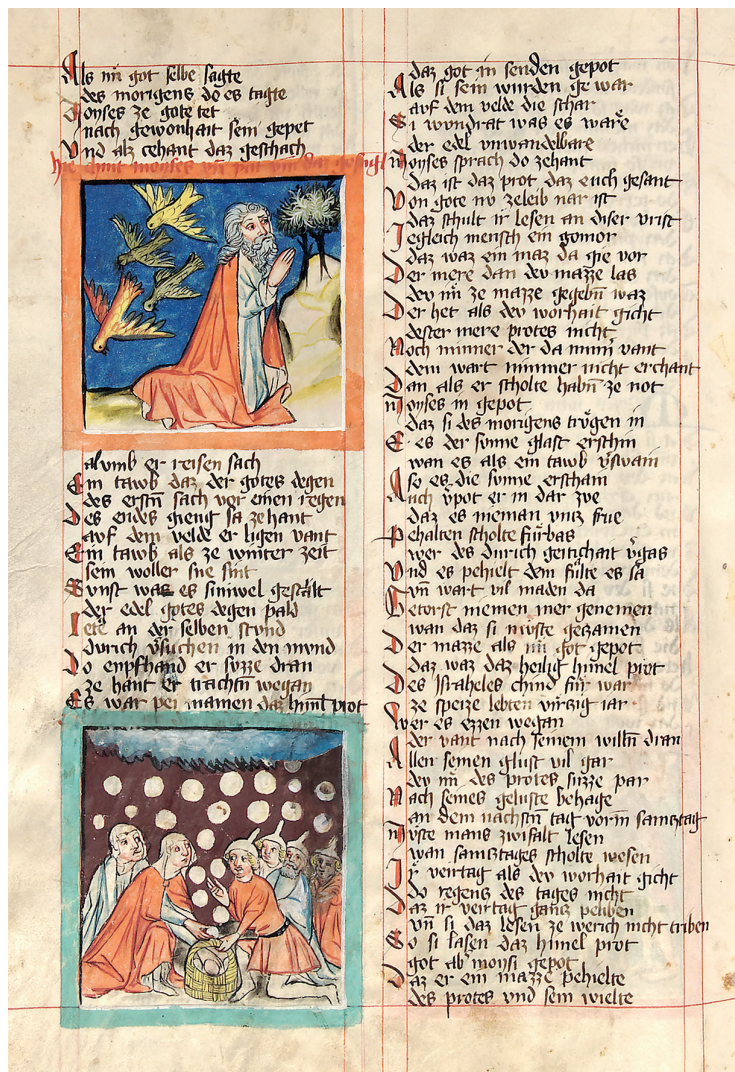 Als im got selbe sagte
des morigens do es tagte
Moyses ze gote tet
nach gewonhait sein gepet
Vnd alz zehant daz geschach
hie chnit moyses vnd pat
alvmb er reisen sach
Ein tawb daz der gotes degen
des erstn sach vor einen regen
Des endes gieng sa zehant
avf dem velde er ligen vant
Ein tawb als ze winter zeit
sem woller sne sint
Svnst waz es sinwel gestalt
der edel gotes degen pald
Iete an der selben stvnd
dvrich vsuchen in den mvnd
Do enpfhand er svzze dran
ze hant er trachtn wegan
Es war pei namen daz himl prot
daz got in senden gepot
Als si sein wurden gewar
avf dem velde die schar
Si wundrat was es ware
der edel vnwandelbare
Moyses sprach do zehant
daz ist daz prot daz euch gesant
Von gote nv zeleib nar ist
daz schult ir lesen an diser vrist
Iegleich mensch ein gomor
daz waz ein maz da gie vor
Der mere dan dev mazze las
dev im ze mazze gegebn waz
Der het als dev worhait gicht
dester mere protes nicht
Noch minner der da minn vant
dem wart minner nicht erchant
Dan als er scholte habn ze not
Moyses in gepot
daz si des morigens trvgen in
E es der svnne glast erschin
wan es als ein tawb vswain
So es die svnne erscham
Auch vpot er in dar zve
daz es nieman vntz frve
Pehalten scholte fürbas
wer des durich geitichant vgas
Vnd es pehielt dem fulte es sa
vnd wart vil maden da
Getorst niemen mer genemen
wan daz si mvste gezamen
Der mazze als im got gepot
daz waz daz heilig himel prot
Des Israheles chind fur war
ze speize lebten virzig iar
Wer es ezzen wegan
der vant nach seinem willn dran
Allen seinen glust vil gar
dev im des protes suzze par
Nach seines geluste behage
an dem nachstn tag vorm samcztag
Mvste mans zwifalt lesen
wan samsztages scholte wesen
Ir veirtag als dev worhait gicht
do regens des tages nicht
Daz ir veirtag gantz peliben
vnd si daz lesen ze werich nicht triben
Do si lasen daz himel prot
got ab moysi gepot
Daz er ein mazze pehielte
des protes vnd sein wielte